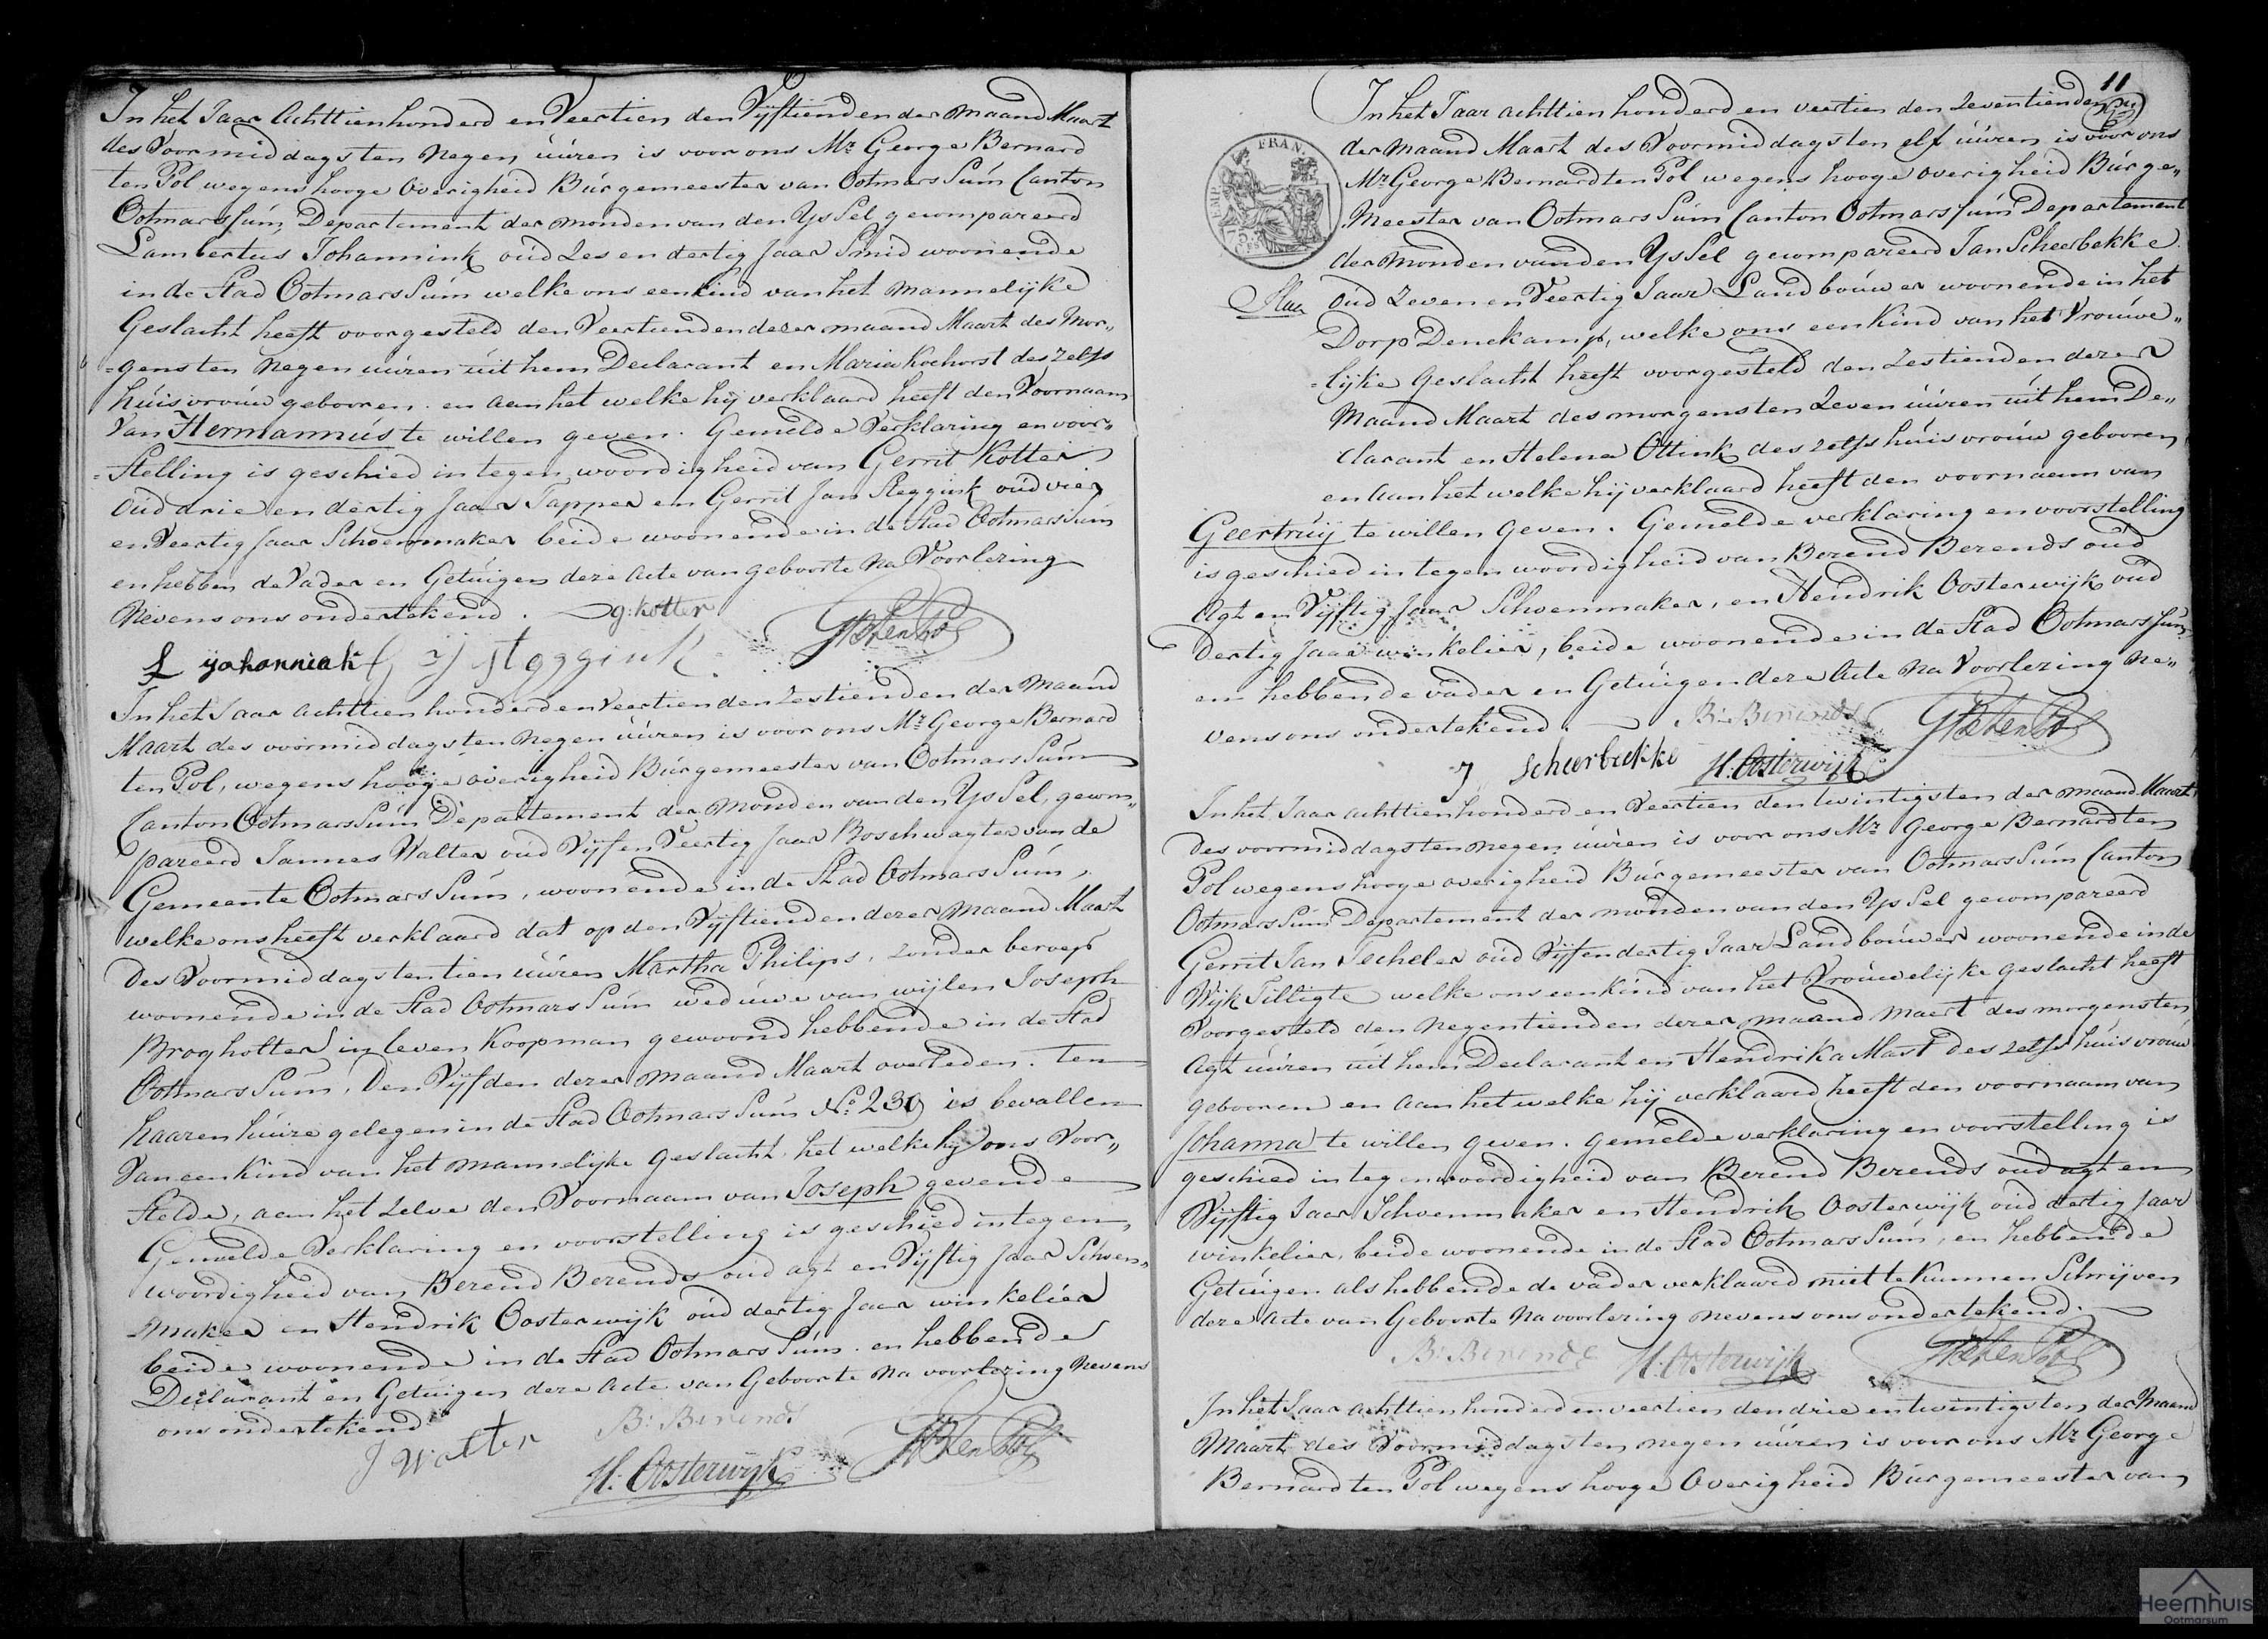 In het Jaar Achttienhonderd en Veertien den Vyftienden der maand Maart
des Voormiddags ten Negen uúren is voor ons Mr George Bernard
ten Pol wegens hooge Overigheid Búrgemeester van Ootmarssúm Canton
Ootmarssúm Departement der monden van den Yssel gecompareerd
Lambertús Johannink oúd Zes en dertig Jaar Smid woonende
in de Stad Ootmarssúm welke ons een kind van het mannelyke
Geslacht heeft voorgesteld den Veertienden dezer maand Maart des Mor„
=gens ten Negen uúren uit hem Declarant en Maria Kochorst deszelfs
húisvroúw gebooren. en aan het welke hy verklaard heeft den Voornaam
Van Hermannús te willen geven. Gemelde Verklaring en voor„
=Stelling is geschied in tegenwoordigheid van Gerrit Kotter
Oúd drie en dertig Jaar Tapper en Gerrit Jan Steggink oúd vier
en Veertig Jaar Schoenmaker beide woonende in de Stad Ootmarssúm
en hebben de Vader en Getúigen deze Acte van geboorte Na Voorlezing
Nevens ons ondertekend. g: Kotter
GBtenPol
L yohannink G J steggink
In het Jaar Achttien honderd en Veertien den Zestienden der Maand
Maart des voormiddags ten Negen uúren is voor ons Mr George Bernard
ten Pol, wegens hooge overigheid Búrgemeester van Ootmarssúm
Canton Ootmarssúm Departement der Monden van den Yssel, gecom„
pareerd Jannes Walter oúd Vyf en Veertig Jaar Boschwagter van de
Gemeente Ootmarssúm, woonende in de Stad Ootmarssúm,
welke ons heeft verklaard dat op den Vyftienden dezer maand Maart
des Voormiddags ten tien uúren Martha Philips, zonder beroep
woonende in de Stad Ootmarssúm wedúwe van wijlen Joseph
Brogholter in leven Koopman gewoond hebbende in de Stad
Ootmarssúm, den Vyfden dezer maand Maart overleden. ten
haaren húize gelegen in de Stad Ootmarssúm No. 239 is bevallen
Van een Kind van het mannelijke Geslacht, het welke hy ons Voor„
Stelde, aan het zelve den Voornaam van Joseph gevende
Gemelde Verklaring en voorstelling is geschied in tegen„
woordigheid van Berend Berends oúd agt en Vyftig Jaar Schoen„
maker en Hendrik Oosterwijk oúd dertig Jaar winkelier
beide woonende in de Stad Ootmarssúm. en hebbende
Declarant en Getúigen deze Acte van Geboorte Na voorlezing Nevens
ons ondertekend
J Walter B: Berends
H. Oosterwijk GBtenPol
11
In het Jaar achttien honderd en veertien den Zeventienden
der Maand Maart des Voormiddags ten elf uúren is voor ons
Mr George Bernard ten Pol wegens hooge overigheid Búrge„
Meester van Ootmarssúm Canton Ootmarssúm Departement
der Monden van den Yssel gecompareerd Jan Scheerbekke
Oúd Zeven en Veertig Jaar Landboúwer woonende in het
Dorp Denekamp, welke ons een Kind van het Vroúwe„
=lijke Geslacht heeft voorgesteld den Zestienden dezer
Maand Maart des morgens ten Zeven uúren úit hem De„
clarant en Helena Ottink deszelfs húisvroúw gebooren
en aan het welke hij verklaard heeft den voornaam van
Geertruij te willen geven. Gemelde verklaring en voorstelling
is geschied in tegenwoordigheid van Berend Berends oúd
Agt en Vyftig Jaar Schoenmaker, en Hendrik Oosterwijk oúd
Dertig Jaar winkelier, beide woonende in de Stad Ootmarssúm
en hebbende vader en Getúigen deze Acte Na Voorlezing Ne„
vens ons ondertekend. B: Berends GBtenPol
J, Scheerbekke H. Oosterwijk
In het Jaar achttien honderd en Veertien den twintigsten der maand Maart
des voormiddags ten negen uúren is voor ons Mr George Bernard ten
Pol wegens hooge overigheid Búrgemeester van Ootmarssúm Canton
Ootmarssúm Departement der monden van den Yssel gecompareerd
Gerrit Jan Techeler oúd Vyf en dertig Jaar Landboúwer woonende in de
Wijk Tilligte welke ons een kind van het Vroúwelijke geslacht heeft
Voorgesteld den Negentienden dezer maand Maert des morgens ten
Agt uúren uit hem Declarant en Hendrika Mast deszelfs húisvroúw
gebooren en aan het welke hij verklaard heeft den voornaam van
Johanna te willen geven. Gemelde verklaring en voorstelling is
geschied in tegenwoordigheid van Berend Berends oúd agt en
Vyftig Jaar Schoenmaker en Hendrik Oosterwijk oúd dertig Jaar
winkelier, beide woonende in de Stad Ootmarssúm, en hebbende
Getúigen als hebbende de vader verklaard niet te Kunnen Schrijven
deze Acte van Geboorte Na voorlezing nevens ons ondertekend.
B: Berends H. Oosterwijk GBtenPol
In het Jaar achttien honderd en veertien den drie en twintigsten der Maand
Maart des Voormiddags ten negen uúren is voor ons Mr George
Bernard ten Pol wegens hooge Overigheid Búrgemeester van
Heemhuis
Ootmarsum